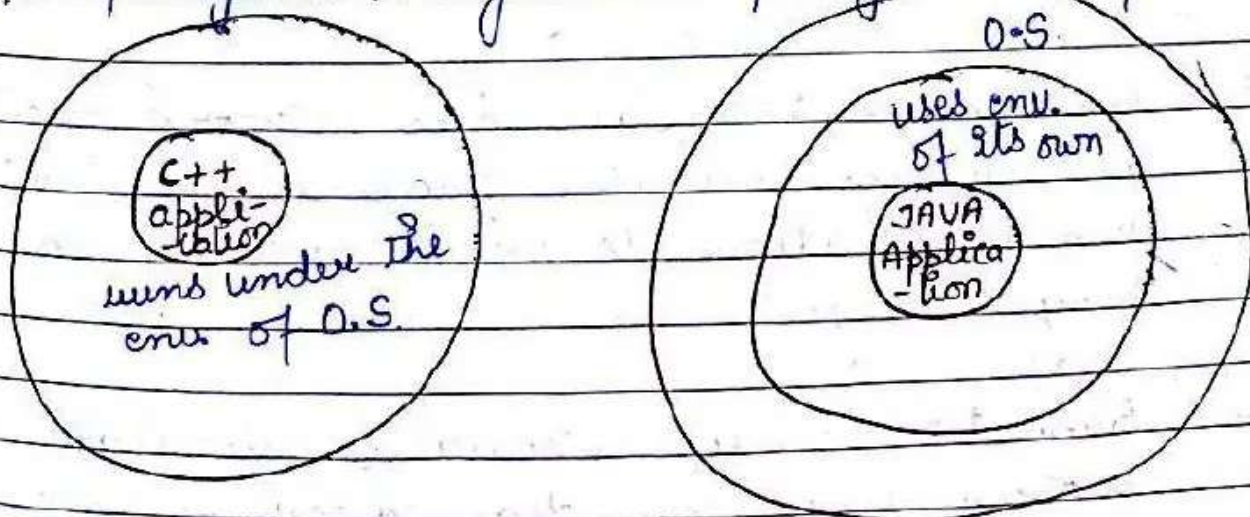 C++
appli-
-cation
runs under the
env. of O.S.
O.S.
uses env.
of its own
JAVA
Applica
-tion